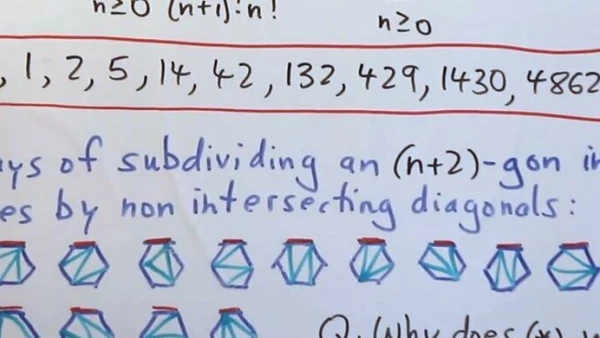 n≥0 (n+1)! n! n≥0
, 1, 2, 5, 14, 42, 132, 429, 1430, 4862
ys of subdividing an (n+2)-gon in
es by non intersecting diagonals:
Q. Why does (*)